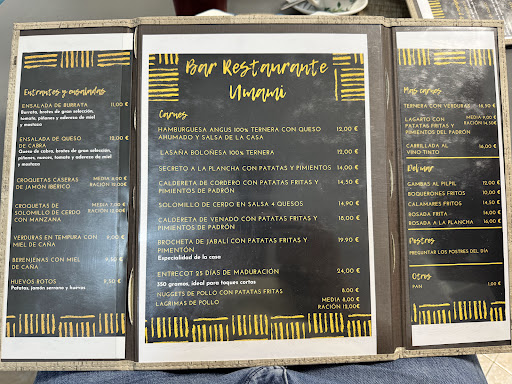 Entrantes y ensaladas
ENSALADA DE BURRATA 11,00 €
Burrata, brotes de gran selección,
tomate, piñones y aderezo de miel
y mostaza
ENSALADA DE QUESO
DE CABRA 12,00 €
Queso de cabra, brotes de gran selección,
piñones, nueces, tomate y aderezo de miel
y mostaza
CROQUETAS CASERAS
DE JAMÓN IBÉRICO
MEDIA €
RACIÓN €
CROQUETAS DE
SOLOMILLO DE CERDO
CON MANZANA
MEDIA €
RACIÓN €
VERDURAS EN TEMPURA CON
MIEL DE CAÑA €
BERENJENAS CON MIEL
DE CAÑA 9,50 €
HUEVOS ROTOS 9,50 €
Patatas, jamón serrano y huevos
Bar Restaurante
Umami
Carnes
HAMBURGUESA ANGUS 100% TERNERA CON QUESO 12,00 €
AHUMADO Y SALSA DE LA CASA
LASAÑA BOLOÑESA 100% TERNERA 12,00 €
SECRETO A LA PLANCHA CON PATATAS Y PIMIENTOS 14,00 €
CALDERETA DE CORDERO CON PATATAS FRITAS Y 14,50 €
PIMIENTOS DE PADRÓN
SOLOMILLO DE CERDO EN SALSA 4 QUESOS 14,90 €
CALDERETA DE VENADO CON PATATAS FRITAS Y 18,00 €
PIMIENTOS DE PADRÓN
BROCHETA DE JABALÍ CON PATATAS FRITAS Y 19,90 €
PIMENTÓN
Especialidad de la casa
ENTRECOT 25 DÍAS DE MADURACIÓN 24,00 €
350 gramos, ideal para toques cortos
NUGGETS DE POLLO CON PATATAS FRITAS 8,00 €
LAGRIMAS DE POLLO MEDIA 8,00 €
RACIÓN 12,00€
Mas carnes
TERNERA CON VERDURAS 16,50 €
LAGARTO CON MEDIA 9,00 €
PATATAS FRITAS Y RACIÓN 14,50€
PIMIENTOS DEL PADRÓN
CARRILLADA AL 16,00 €
VINO TINTO
Del mar
GAMBAS AL PILPIL 12,00 €
BOQUERONES FRITOS 10,00 €
CALAMARES FRITOS 14,50 €
ROSADA FRITA 14,00 €
ROSADA A LA PLANCHA 16,00 €
Postres
PREGUNTAR LOS POSTRES DEL DÍA
Otros
PAN 1,00 €